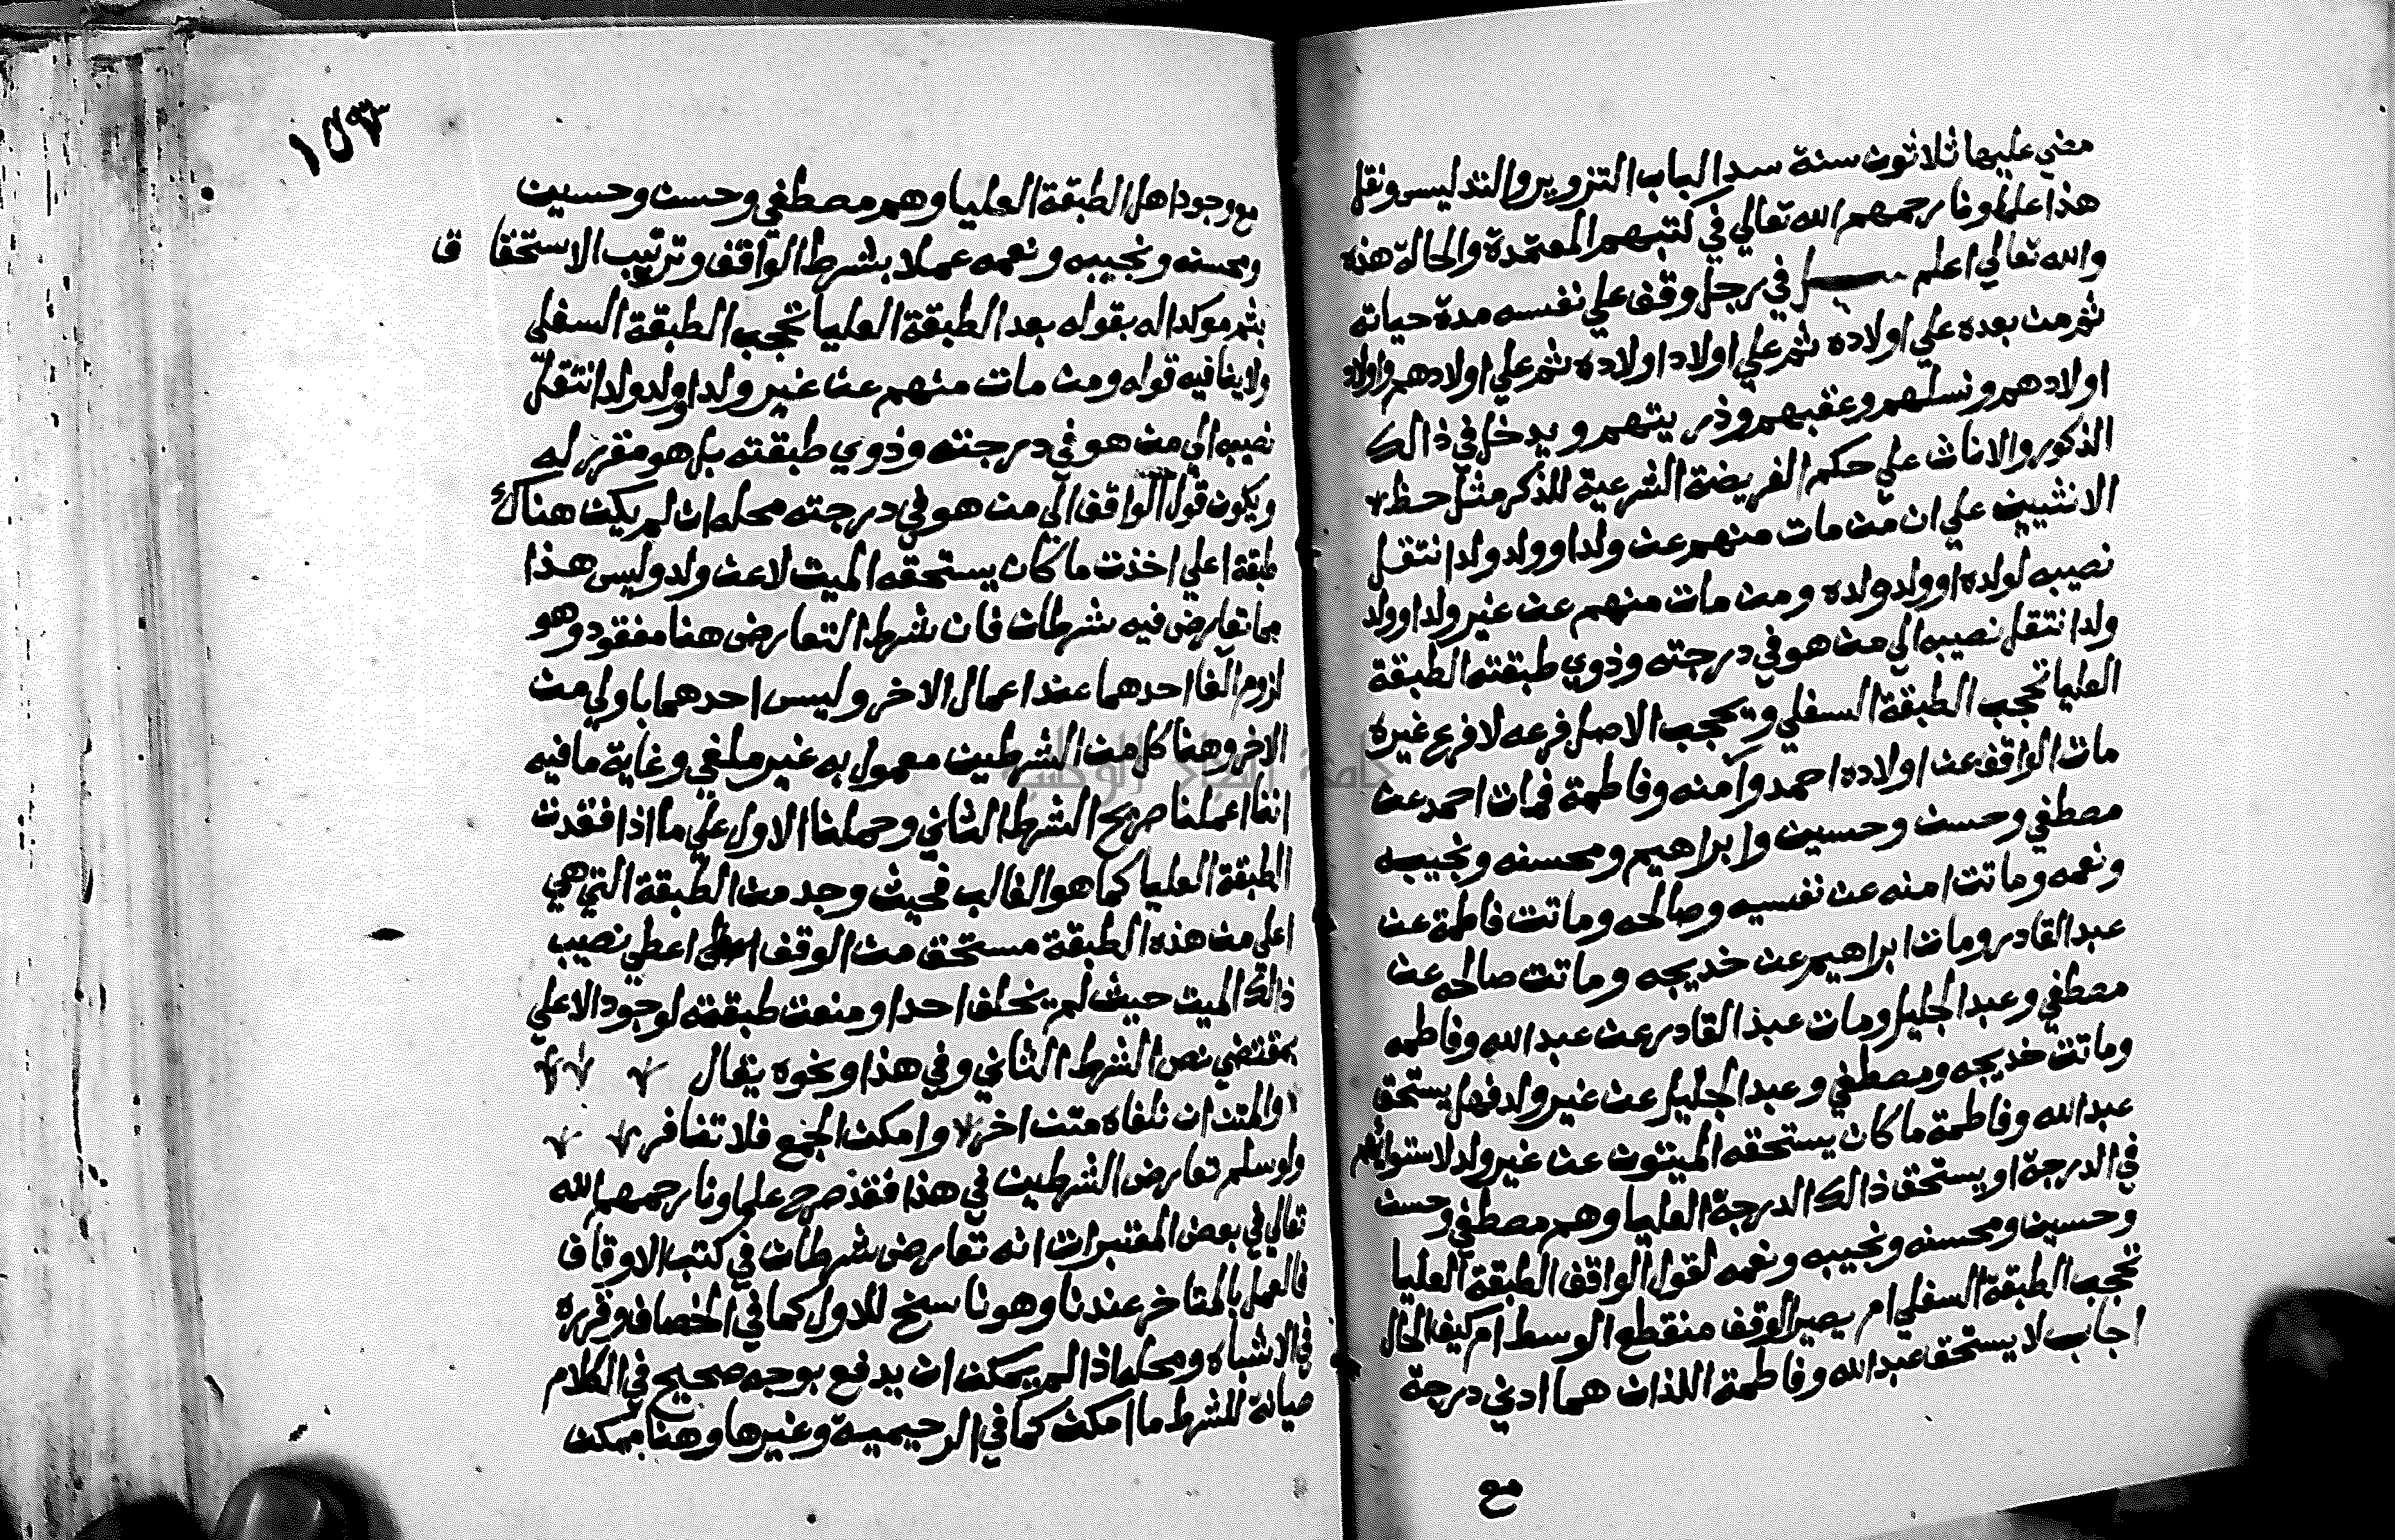 مضي عليها ثلاثون سنة سدا لباب التزوير والتدليس ونقل
هذا علماونا رحمهم الله تعالي في كتبهم المعتمدة والحالة هذه
والله تعالي اعلم سيل في رجل وقف علي نفسه مدة حياته
ثم من بعده علي اولاده ثم علي اولاد اولاده ثم علي اولادهم واولاد
اولادهم ونسلهم وعقبهم وذريتهم ويدخل في ذالك
الذكور والاناث علي حكم الفريضة الشرعية للذكر مثل حظ
الانثيين علي ان من مات منهم عن ولد او ولد ولد انتقل
نصيبه لولده او ولد ولده ومن مات منهم عن غير ولد او ولد
ولد انتقل نصيبه الي من هو في درجته وذوي طبقته الطبقة
العليا تحجب الطبقة السفلي ويحجب الاصل فرعه لا فرع غيره
مات الواقف عن اولاده احمد وآمنه وفاطمة فمات احمد عن
مصطفي وحسن وحسين وابراهيم ومحسنه ونجيبه
ونعمه وماتت امنه عن نفسيه وصالحه وماتت فاطمة عن
عبد القادر ومات ابراهيم عن خديجه وماتت صالحه عن
مصطفي وعبد الجليل ومات عبد القادر عن عبد الله وفاطمه
وماتت خديجه ومصطفي وعبد الجليل عن غير ولد فهل يستحق
عبد الله وفاطمة ما كان يستحقه الميتون عن غير ولد لاستوائهم
في الدرجة او يستحق ذالك الدرجة العليا وهم مصطفي وحسن
وحسين ومحسنه ونجيبه ونعمه لقول الواقف الطبقة العليا
تحجب الطبقة السفلي ام يصير الوقف منقطع الوسط ام كيف الحال
اجاب لا يستحق عبد الله وفاطمة اللذان هما ادني درجة
مع
١٥٣
مع وجود اهل الطبقة العليا وهم مصطفي وحسن وحسين
ومحسنه ونجيبه ونعمه عملا بشرط الواقف وترتيب الاستحقا ق
بثم موكدا له بقوله بعد الطبقة العليا تحجب الطبقة السفلي
ولا ينافيه قوله ومن مات منهم عن غير ولد او ولد ولد انتقل
نصيبه الي من هو في درجته وذوي طبقته بل هو مقرر له
ويكون قول الواقف الي من هو في درجته محله ان لم يكن هناك
طبقة اعلي اخذت ما كان يستحقه الميت لا عن ولد وليس هذا
مما تعارض فيه شرطان فان شرط التعارض هنا مفقود وهو
لزوم الغا احدهما عند اعمال الاخر وليس احدهما باولي من
الاخر وهنا كل من الشرطين معمول به غير ملغي وغاية ما فيه
اننا اعملنا صريح الشرط الثاني وحملنا الاول علي ما اذا فقدت
الطبقة العليا كما هو الغالب فحيث وجد من الطبقة التي هي
اعلي من هذه الطبقة مستحق من الوقف اعطي نصيب
ذالك الميت حيث لم يخلف احدا ومنعت طبقته لوجود الاعلي
بمقتضي نص الشرط الثاني وفي هذا ونحوه يقال
والمتن ان نافاه متن اخر وامكن الجمع فلا تنافر
ولو سلم تعارض الشرطين في هذا فقد صرح علماونا رحمهم الله
تعالي في بعض المعتبرات انه تعارض شرطان في كتب الاوقاف
فالعمل بالمتاخر عندنا وهو ناسخ للاول كما في الخصاف وقرره
في الاشباه ومحله اذا لم يمكن ان يدفع بوجه صحيح في الكلام
صيانة للشرط ما امكن كما في الرحيمية وغيرها وهنا ممكن